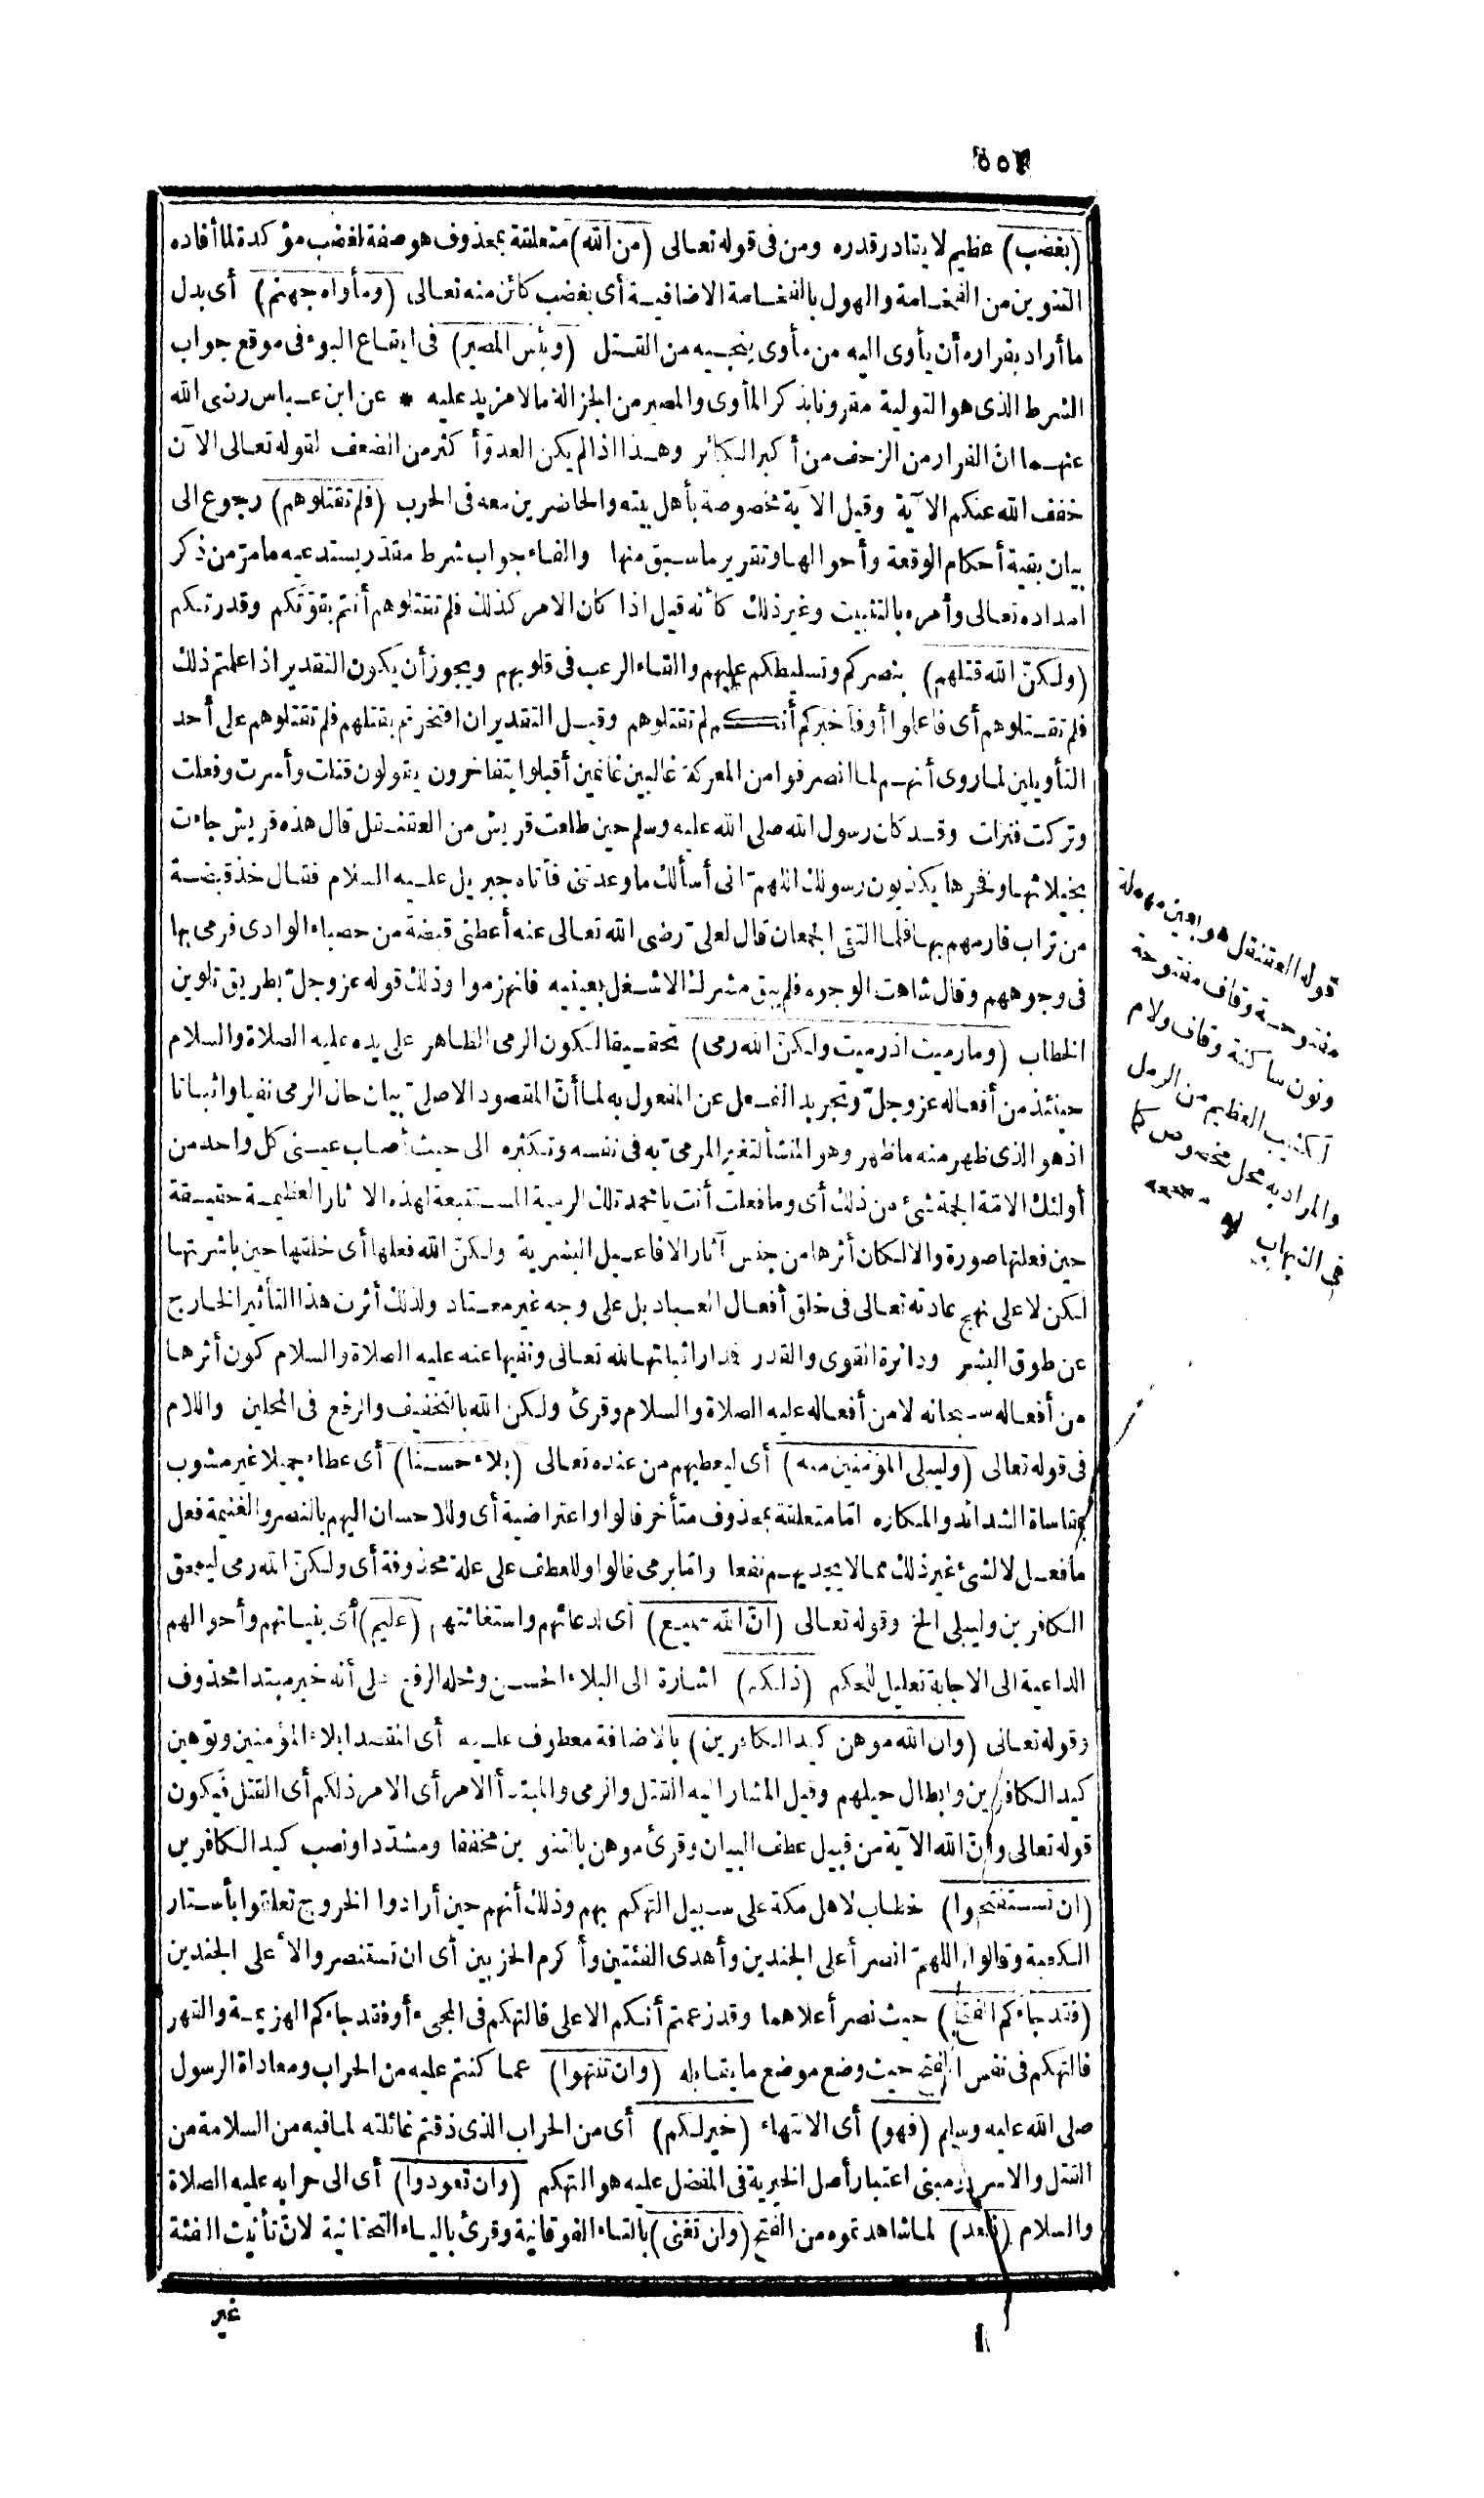 (بغضب) عظيم لا يقادر قدره ومن فى قوله تعالى (من الله) متعلقة بمحذوف هو صفة لغضب مؤكدة لما أفاده
التنوين من الفخامة والهول بالفخامة الاضافية أى بغضب كائن منه تعالى (ومأواه جهنم) أى بدل
ما أراد بفراره أن يأوى اليه من مأوى ينجيه من القتل (وبئس المصير) فى ايقاع البوء فى موقع جواب
الشرط الذى هو التولية مقرونا بذكر المأوى والمصير من الجزالة مالا مزيد عليه * عن ابن عباس رضى الله
عنهما انّ الفرار من الزحف من أكبر الكبائر وهذا اذا لم يكن العدوّ أكثر من الضعف لقوله تعالى الآن
خفف الله عنكم الآية وقيل الآية مخصوصة بأهل بيته والحاضرين معه فى الحرب (فلم تقتلوهم) رجوع الى
بيان بقية أحكام الوقعة وأحوالها وتقرير ما سبق منها والفاء جواب شرط مقدّر يستدعيه ما مرّ من ذكر
امداده تعالى وأمره بالتثبيت وغير ذلك كأنه قيل اذا كان الامر كذلك فلم تقتلوهم أنتم بقوّتكم وقدرتكم
(ولكنّ الله قتلهم) بنصركم وتسليطكم عليهم والقاء الرعب فى قلوبهم ويجوز أن يكون التقدير اذا علمتم ذلك
فلم تقتلوهم أى فاعلموا أو فأخبركم أنكم لم تقتلوهم وقيل التقدير ان افتخرتم بقتلهم فلم تقتلوهم على أحد
التأويلين لما روى أنهم لما انصرفوا من المعركة غالبين غانمين أقبلوا يتفاخرون يقولون قتلت وأسرت وفعلت
وتركت فنزلت وقد كان رسول الله صلى الله عليه وسلم حين طلعت قريش من العقنقل قال هذه قريش جاءت
بخيلائها وفخرها يكذبون رسولك اللهمّ انى أسألك ما وعدتنى فأتاه جبريل عليه السلام فقال خذ قبضة
من تراب فارمهم بها فلما التقى الجمعان قال لعلىّ رضى الله تعالى عنه أعطنى قبضة من حصباء الوادى فرمى بها
فى وجوههم وقال شاهت الوجوه فلم يبق مشرك الا شغل بعينيه فانهزموا وذلك قوله عز وجلّ بطريق تلوين
الخطاب (وما رميت اذ رميت ولكنّ الله رمى) تحقيقا لكون الرمى الظاهر على يده عليه الصلاة والسلام
حينئذ من أفعاله عز وجلّ وتجريد الفعل عن المفعول به لما أنّ المقصود الاصلىّ بيان حال الرمى نفيا واثباتا
اذ هو الذى ظهر منه ما ظهر وهو المنشأ لتغير المرمىّ به فى نفسه وتكثره الى حيث أصاب عينى كل واحد من
أولئك الامّة الجمة شئ من ذلك أى وما فعلت أنت يا محمد تلك الرمية المستتبعة لهذه الآثار العظيمة حقيقة
حين فعلتها صورة والا لكان أثرها من جنس آثار الافاعيل البشرية ولكنّ الله فعلها أى خلقها حين باشرتها
لكن لا على نهج عادته تعالى فى خلق أفعال العباد بل على وجه غير معتاد ولذلك أثرت هذا التأثير الخارج
عن طوق البشر ودائرة القوى والقدر فمدار اثباتها لله تعالى ونفيها عنه عليه الصلاة والسلام كون أثرها
من أفعاله سبحانه لا من أفعاله عليه الصلاة والسلام وقرئ ولكن الله بالتخفيف والرفع فى المحلين واللام
فى قوله تعالى (وليبلى المؤمنين منه) أى ليعطيهم من عنده تعالى (بلاء حسنا) أى عطاء جميلا غير مشوب
بمقاساة الشدائد والمكاره امّا متعلقة بمحذوف متأخر فالواو اعتراضية أى وللاحسان اليهم بالنصر والغنيمة فعل
ما فعل لا لشئ غير ذلك مما لا يجديهم نفعا وامّا برمى فالواو للعطف على علة محذوفة أى ولكنّ الله رمى ليمحق
الكافرين وليبلى الخ وقوله تعالى (انّ الله سميع) أى لدعائهم واستغاثتهم (عليم) أى بنياتهم وأحوالهم
الداعية الى الاجابة تعليل للحكم (ذلكم) اشارة الى البلاء الحسن ومحله الرفع على أنه خبر مبتدا محذوف
وقوله تعالى (وان الله موهن كيد الكافرين) بالاضافة معطوف عليه أى المقصد ابلاء المؤمنين وتوهين
كيد الكافرين وابطال حيلهم وقيل المشار اليه القتل والرمى والمبتدأ الامر أى الامر ذلكم أى القتل فيكون
قوله تعالى وانّ الله الآية من قبيل عطف البيان وقرئ موهن بالتنوين مخففا ومشدّدا ونصب كيد الكافرين
(ان تستفتحوا) خطاب لاهل مكة على سبيل التهكم بهم وذلك أنهم حين أرادوا الخروج تعلقوا بأستار
الكعبة وقالوا اللهمّ انصر أعلى الجندين وأهدى الفئتين وأكرم الحزبين أى ان تستنصروا لأعلى الجندين
(فقد جاءكم الفتح) حيث نصر أعلاهما وقد زعمتم أنكم الاعلى فالتهكم فى المجىء أو فقد جاءكم الهزيمة والقهر
فالتهكم فى نفس الفتح حيث وضع موضع ما يقابله (وان تنتهوا) عما كنتم عليه من الحراب ومعاداة الرسول
صلى الله عليه وسلم (فهو) أى الانتهاء (خير لكم) أى من الحراب الذى ذقتم غائلته لما فيه من السلامة من
القتل والاسر ومبنى اعتبار أصل الخيرية فى المفضل عليه هو التهكم (وان تعودوا) أى الى حرابه عليه الصلاة
والسلام (نعد) لما شاهدتموه من الفتح (وان تغنى) بالتاء الفوقانية وقرئ بالياء التحتانية لانّ تأنيث الفئة
غير
قوله العقنقل هو بعين مهملة
مفتوحة وقاف مفتوحة
ونون ساكنة وقاف ولام
الكثيب العظيم من الرمل
والمراد به محل مخصوص كما
فى الشهاب